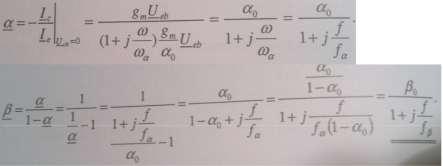 α = -I_c/I_e |_{U_cb=0} = g_m U_eb / ((1+j ω/ω_α) g_m/α_0 U_eb) = α_0 / (1+j ω/ω_α) = α_0 / (1+j f/f_α).
β = α/(1-α) = 1/(1/α -1) = 1/((1+j f/f_α)/α_0 -1) = α_0/(1-α_0+j f/f_α) = (α_0/(1-α_0))/(1+j f/(f_α(1-α_0))) = β_0/(1+j f/f_β).